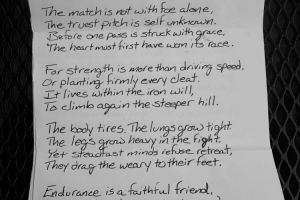 The match is not with foe alone,
The truest pitch is self unknown.
Before one pass is struck with grace,
The heart must first have won its race.
For strength is more than driving speed,
Or planting firmly every cleat.
It lives within the iron will,
To climb again the steeper hill.
The body tires. The lungs grow tight.
The legs grow heavy in the fight.
Yet steadfast minds refuse retreat,
They drag the weary to their feet.
Endurance is a faithful friend,